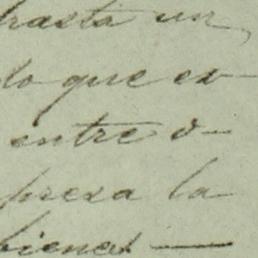 hasta un
lo que es-
entre o-
presa la
bienes —